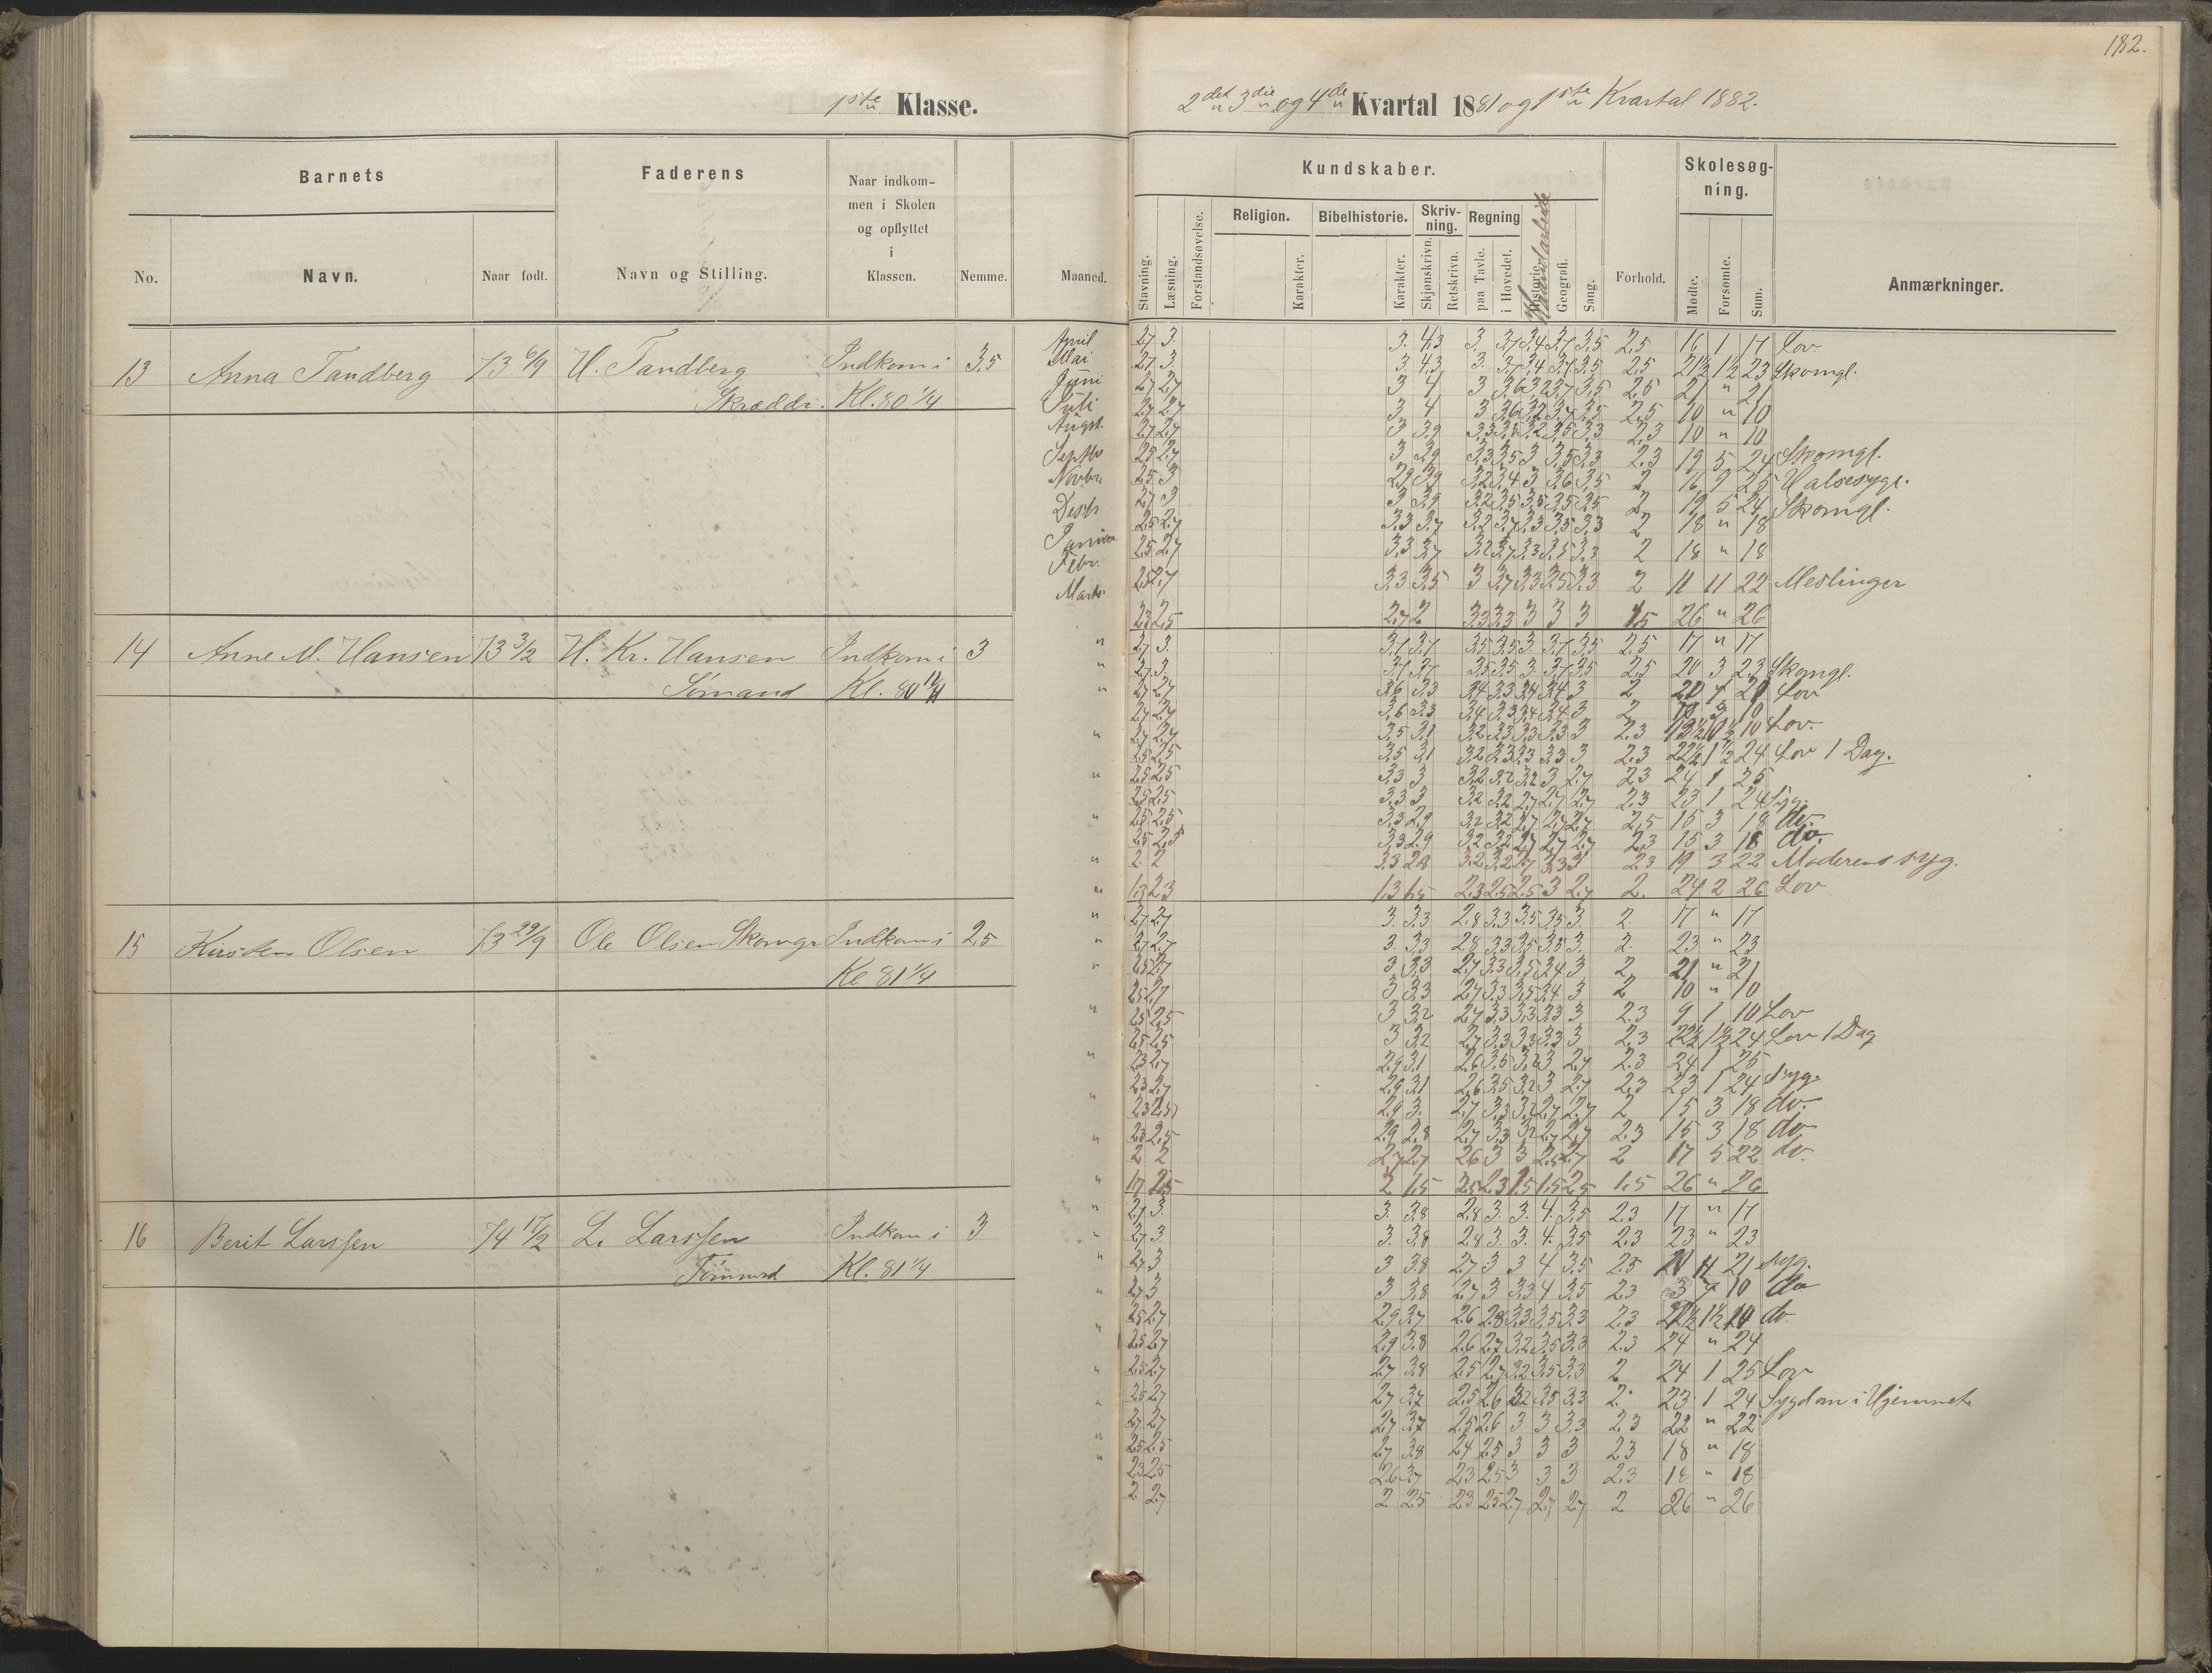 182.
1ste Klasse.
2det 3die og 4de Kvartal 1881 og 1ste Kvartal 1882.
Barnets
Faderens
Naar indkommen i Skolen og opflyttet i Klassen.
Nemme.
Maaned.
Kundskaber.
Forhold.
Skolesøgning.
Anmærkninger.
No.
Navn.
Naar født.
Navn og Stilling.
Stavning.
Læsning.
Forstandsøvelse.
Religion.
Karakter.
Bibelhistorie.
Karakter.
Skrivning.
Skjønskrivn.
Retskrivn.
Regning
paa Tavle.
i Hovedet.
Historie.
Haandarbeide
Geografi.
Sang.
Mødte.
Forsømte.
Sum.
13 Anna Tandberg 73 6/9 H. Tandberg Indkom i 3,5
Skrædder. Kl. 80 1/4
April 2,7 3. 3. 4,3 3. 3,7 3,4 3,7 3,5 2,5 16 1 17 Lov.
Mai 2,7 3. 3. 4,3 3. 3,7 3,4 3,7 3,5 2,5 21½ 1½ 23 Skomgl.
Juni 2,7 2,7 3 4 3 3,6 3,2 3,7 3,5 2,5 21 " 21
Juli 2,7 2,7 3 4 3 3,6 3,2 3,7 3,5 2,5 10 " 10
Augst. 2,7 2,7 3 3,9 3,3 3,5 3,2 3,5 3,3 2,3 10 " 10
Septbr 2,5 2,7 3 3,9 3,3 3,5 3 3,5 3,3 2,3 19 5 24 Skomgl.
Novbr. 2,5 3 2,9 3,9 3,2 3,4 3 3,6 3,5 2 16 9 25 Halsesyge.
Desbr 2,7 3 3 3,9 3,2 3,5 3,5 3,5 3,5 2 19 5 24 Skomgl.
Januar 2,5 2,7 3,3 3,7 3,2 3,7 3,3 3,5 3,3 2 18 " 18
Febr. 2,5 2,7 3,3 3,7 3,2 3,7 3,3 3,5 3,3 2 18 " 18
Marts 2,5 2,7 3,3 3,5 3 3,7 3,3 2,5 3,3 2 11 11 22 Meslinger
2,3 2,5 2,7 2 3,3 3,3 3 3 3 1,5 26 " 26
14 Anne M. Hansen 73 3/2 H. Kr. Hansen Indkom i 3
Sømand Kl. 80
" 2,7 3. 3,7 3,7 3,5 3,5 3. 3,7 3,5 2,5 17 " 17
" 2,7 3. 3,7 3,7 3,5 3,5 3. 3,7 3,5 2,5 20 3 23 Skomgl.
" 2,7 2,7 3,6 3,3 3,4 3,3 3,4 3,4 3 2 20 1 21 Lov
2,7 2,7 3,6 3,3 3,4 3,3 3,4 3,4 3 2 10
" 2,7 2,7 3,5 3,1 3,2 3,3 3,3 3,3 3 2,3 10 Lov.
2,5 2,5 3,5 3,1 3,2 3,3 3,3 3,3 3 2,3 22½ 1½ 24 Lov 1 Dag.
" 2,5 2,5 3,3 3 3,2 3,2 3,2 3 2,7 2,3 24 1 25
2,5 2,5 3,3 3 3,2 3,2 2,7 2,7 2,7 2,3 23 1 24 Syg.
" 2,5 2,5 3,3 2,9 3,2 3,2 2,7 2,7 2,7 2,5 15 3 18 do.
2,5 2,5 3,3 2,9 3,2 3,2 2,7 2,7 2,7 2,3 15 3 18 do.
" 2. 2 3,3 2,8 3,2 3,2 2,7 3,3 3 2,3 19 3 22 Moderens syg.
" 1,3 2,3 1,3 1,5 2,3 2,5 2,5 3 2,7 2. 24 2 26 Lov
15 Kirsten Olsen 73 29/9 Ole Olsen Skomgr Indkom i 2,5
Kl 81 1/4
" 2,7 2,7 3. 3,3 2,8 3,3 3,5 3,5 3 2. 17 " 17
" 2,7 2,7 3. 3,3 2,8 3,3 3,5 3,5 3. 2. 23 " 23
" 2,5 2,7 3 3,3 2,7 3,3 3,5 3,4 3 2 21 " 21
2,5 2,7 3 3,3 2,7 3,3 3,5 3,4 3 2 10 " 10
" 2,5 2,5 3 3,2 2,7 3,3 3,3 3,3 3 2,3 9 1 10 Lov
2,5 2,5 3 3,2 2,7 3,3 3,3 3,3 3 2,3 22½ 1½ 24 Lov 1 Dag
" 2,3 2,7 2,9 3,1 2,6 3,5 3,2 3 2,7 2,3 24 1 25
2,3 2,7 2,9 3,1 2,6 3,5 3,2 3 2,7 2,3 23 1 24 Syg.
" 2,3 2,5 2,9 3. 2,7 3,3 3,2 2,7 2,7 2 15 3 18 do.
" 2,3 2,5 2,9 2,8 2,7 3,3 3,2 2,7 2,7 2,3 15 3 18 do
2 2 2,7 2,7 2,6 3 3 2,5 2,7 2 17 5 22 do.
" 1,7 2,5 2 1,5 2,5 2,3 1,5 1,5 2,5 1,5 26 " 26
16 Berit Larssen 74 17/2 L. Larssen Indkom i 3
Tømmd Kl. 81 1/4
" 2,7 3. 3. 3,8 2,8 3. 3. 4. 3,5 2,3 17 " 17
" 2,7 3 3. 3,8 2,8 3. 3. 4. 3,5 2,3 23 " 23
" 2,7 3 3 3,8 2,7 3 3 4 3,5 2,5 21 syg.
" 2,7 3 3 3,8 2,7 3 3,3 4 3,5 2,3 3 7 10 do
" 2,5 2,7 2,9 3,7 2,6 2,8 3,3 3,5 3,3 2,3 1½ 10 do.
2,5 2,7 2,9 3,8 2,6 2,7 3,2 3,5 3,3 2,3 24 " 24
" 2,5 2,7 2,7 3,8 2,5 2,7 3,2 3,5 3,3 2 24 1 25 Lov
" 2,5 2,7 2,7 3,7 2,5 2,6 3,2 3,5 3,3 2. 23 1 24 Sygdom i Hjemmet
" 2,7 2,7 2,7 3,7 2,5 2,6 3 3 3,3 2,3 22 " 22
" 2,5 2,5 2,7 3,8 2,4 2,5 3 3 3 2,3 18 " 18
2,3 2,5 2,6 3,7 2,3 2,5 3 3 3 2,3 18 " 18
2 2,7 2 2,5 2,3 2,5 2,7 2,7 2,7 2 26 " 26